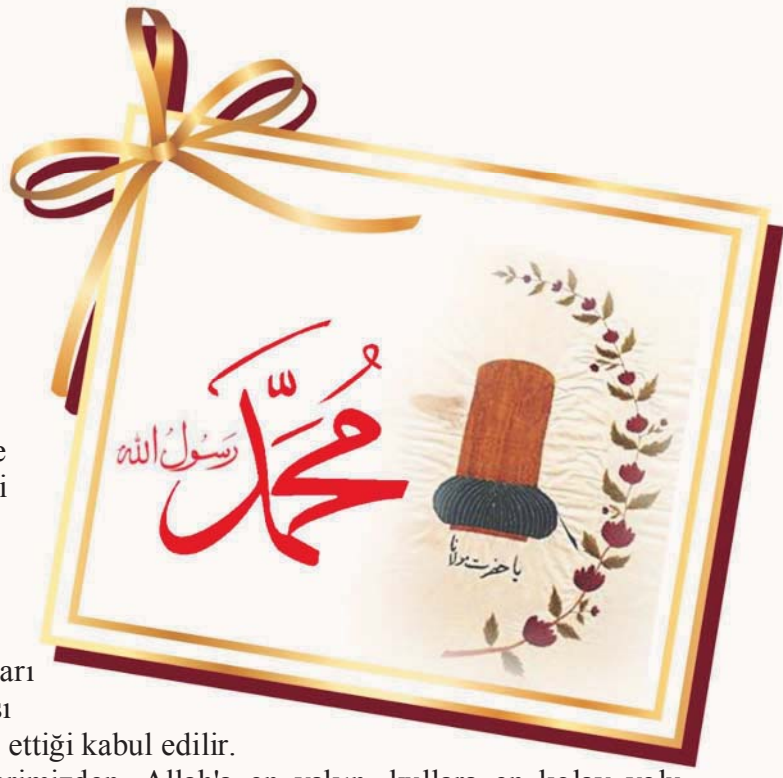 مُحَمَّد
رَسُولُ الله
يا حضرت مولانا
e
i
arı
sı
ettiği kabul edilir.